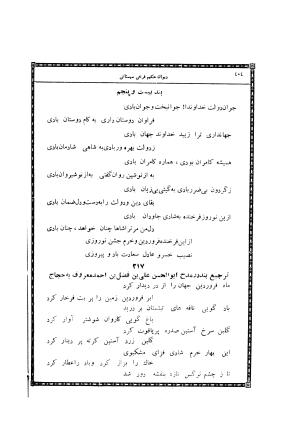 ۴۰۴
دیوان حکیم فرخی سیستانی
بند بیست و پنجم
جوان دولت خداوندا! جوانبخت و جوان بادی
فراوان دوستان داری به کام دوستان بادی
جهانداری ترا زیبد خداوند جهان بادی
ز دولت بهره ور بادی به شاهی شادمان بادی
همیشه کامران بودی، هماره کامران بادی
به از نوشین روان گفتی به از نوشیروان بادی
ز گردون بی‌ضرر بادی به گیتی بی‌زیان بادی
بقای دین و دولت را به دست و دل ضمان بادی
از این نوروز فرخنده به شادی جاودان بادی
دل من مر ترا شاها چنان خواهد، چنان بادی
از این فرخنده فروردین و خرم جشن نوروزی
نصیب خسرو عادل سعادت باد و پیروزی
۲۱۷
ترجیع بند در مدح ابوالحسن علی بن فضل بن احمد معروف به حجاج
ماه فروردین جهان را از در دیدار کرد
ابر فروردین زمین را پر بت فرخار کرد
باد گویی نافه های تبتستان بر درید
باغ گویی کاروان شوشتر آوار کرد
گلبن سرخ آستین صدره پر یاقوت کرد
گلبن زرد آستین کرته پر دینار کرد
این بهار خرم شادی فزای مشکبوی
خاک را بزاز کرد و باد را عطار کرد
تا ز چشم نرگس تازه بنفشه دور شد